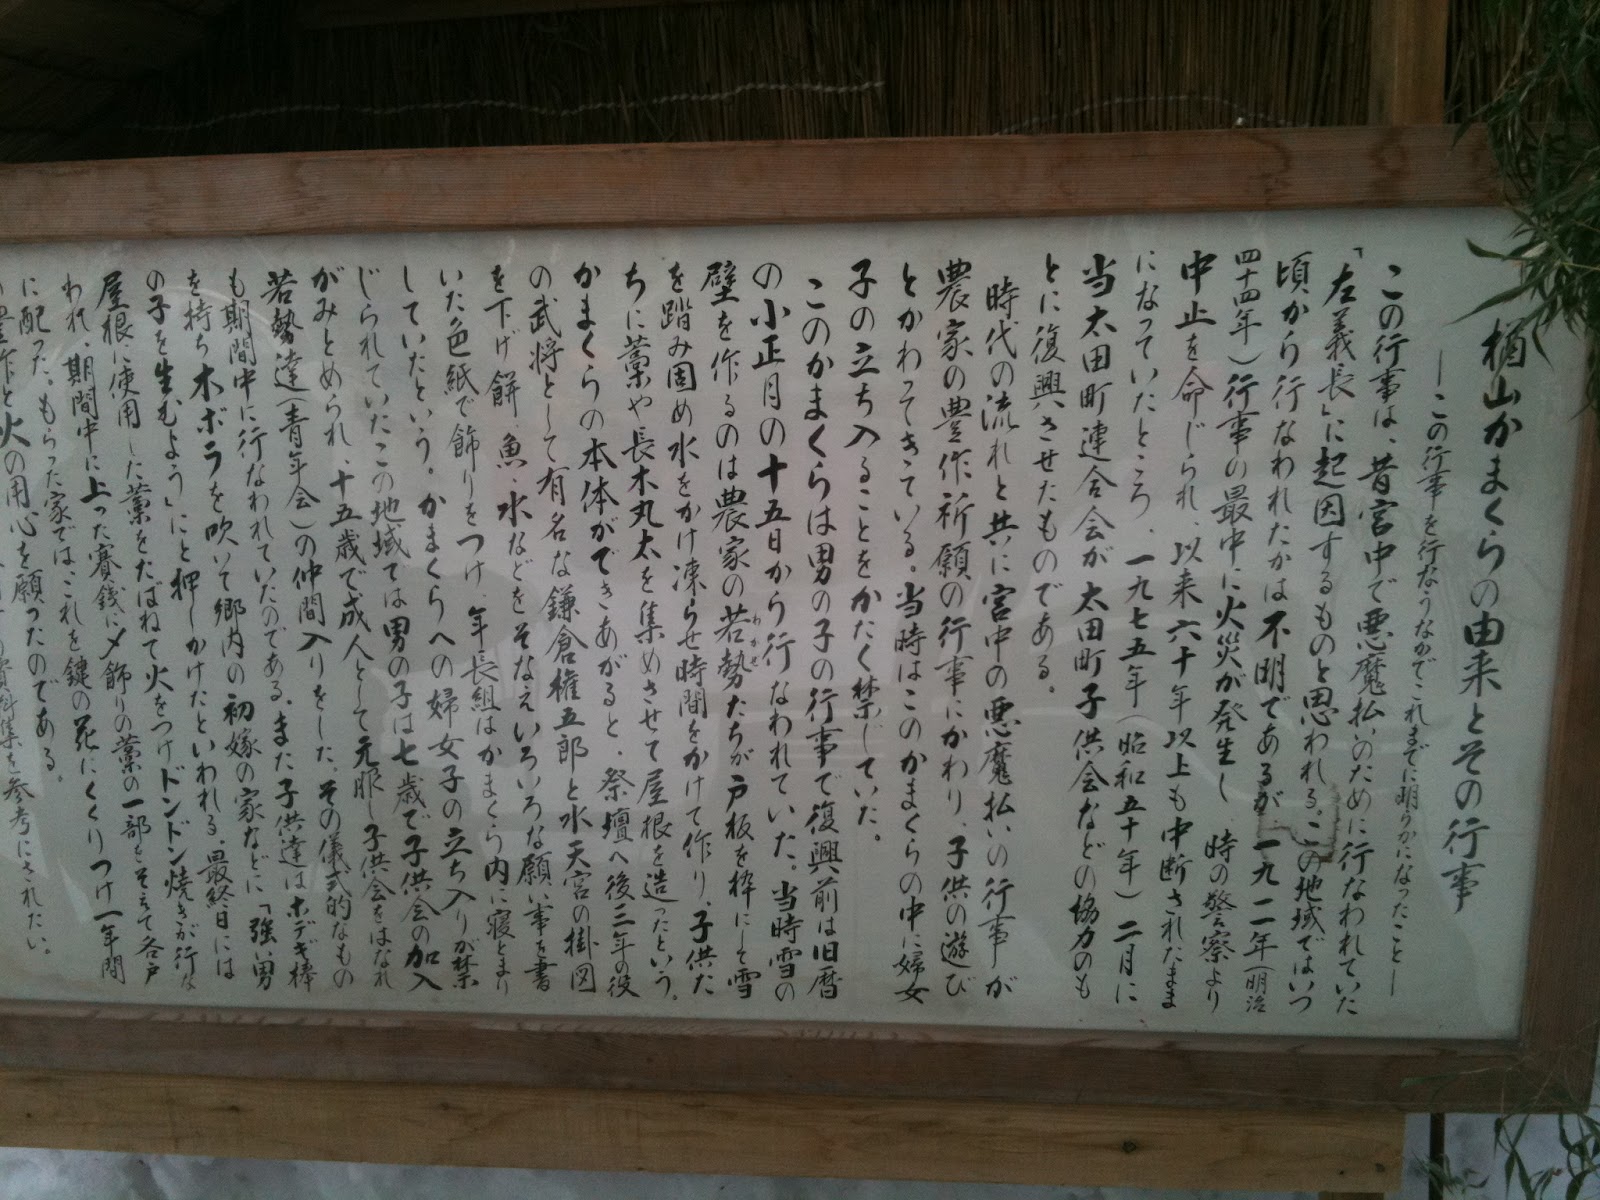 楢山かまくらの由来とその行事
―この行事を行なうなかでこれまでに明らかになったこと―
この行事は、昔宮中で悪魔払いのために行なわれていた
「左義長」に起因するものと思われる。この地域ではいつ
頃から行なわれたかは不明であるが、一九一二年(明治
四十四年)行事の最中に火災が発生し、時の警察より
中止を命じられ、以来六十年以上も中断されたまま
になっていたところ、一九七五年(昭和五十年)二月に
当太田町連合会が太田町子供会などの協力のも
とに復興させたものである。
時代の流れと共に宮中の悪魔払いの行事が
農家の豊作祈願の行事にかわり、子供の遊び
とかわってきている。当時はこのかまくらの中に婦女
子の立ち入ることをかたく禁じていた。
このかまくらは男の子の行事で復興前は旧暦
の小正月の十五日から行なわれていた。当時雪の
壁を作るのは農家の若勢(わかぜ)たちが戸板を枠にして雪
を踏み固め水をかけ凍らせ時間をかけて作り、子供た
ちに藁や長木丸太を集めさせて屋根を造ったという。
かまくらの本体ができあがると、祭壇へ後三年の役
の武将として有名な鎌倉権五郎と水天宮の掛図
を下げ餅、魚、水などをそなえいろいろな願い事を書
いた色紙で飾りをつけ、年長組はかまくら内に寝とまり
していたという。かまくらへの婦女子の立ち入りが禁
じられていたこの地域では男の子は七歳で子供会の加入
がみとめられ、十五歳で成人として元服し子供会をはなれ
若勢達(青年会)の仲間入りをした。その儀式的なもの
も期間中に行なわれていたのである。また子供達はホデギ棒
を持ち木ボラを吹いて郷内の初嫁の家などに「強い男
の子を生むように」と押しかけたといわれる。最終日には
屋根に使用した藁をたばねて火をつけドンドン焼きが行な
われ、期間中に上った賽銭に〆飾りの藁の一部をそえて各戸
に配った。もらった家では、これを鍵の花にくくりつけ一年間
の豊作と火の用心を願ったのである。
資料集を参考にされたい。